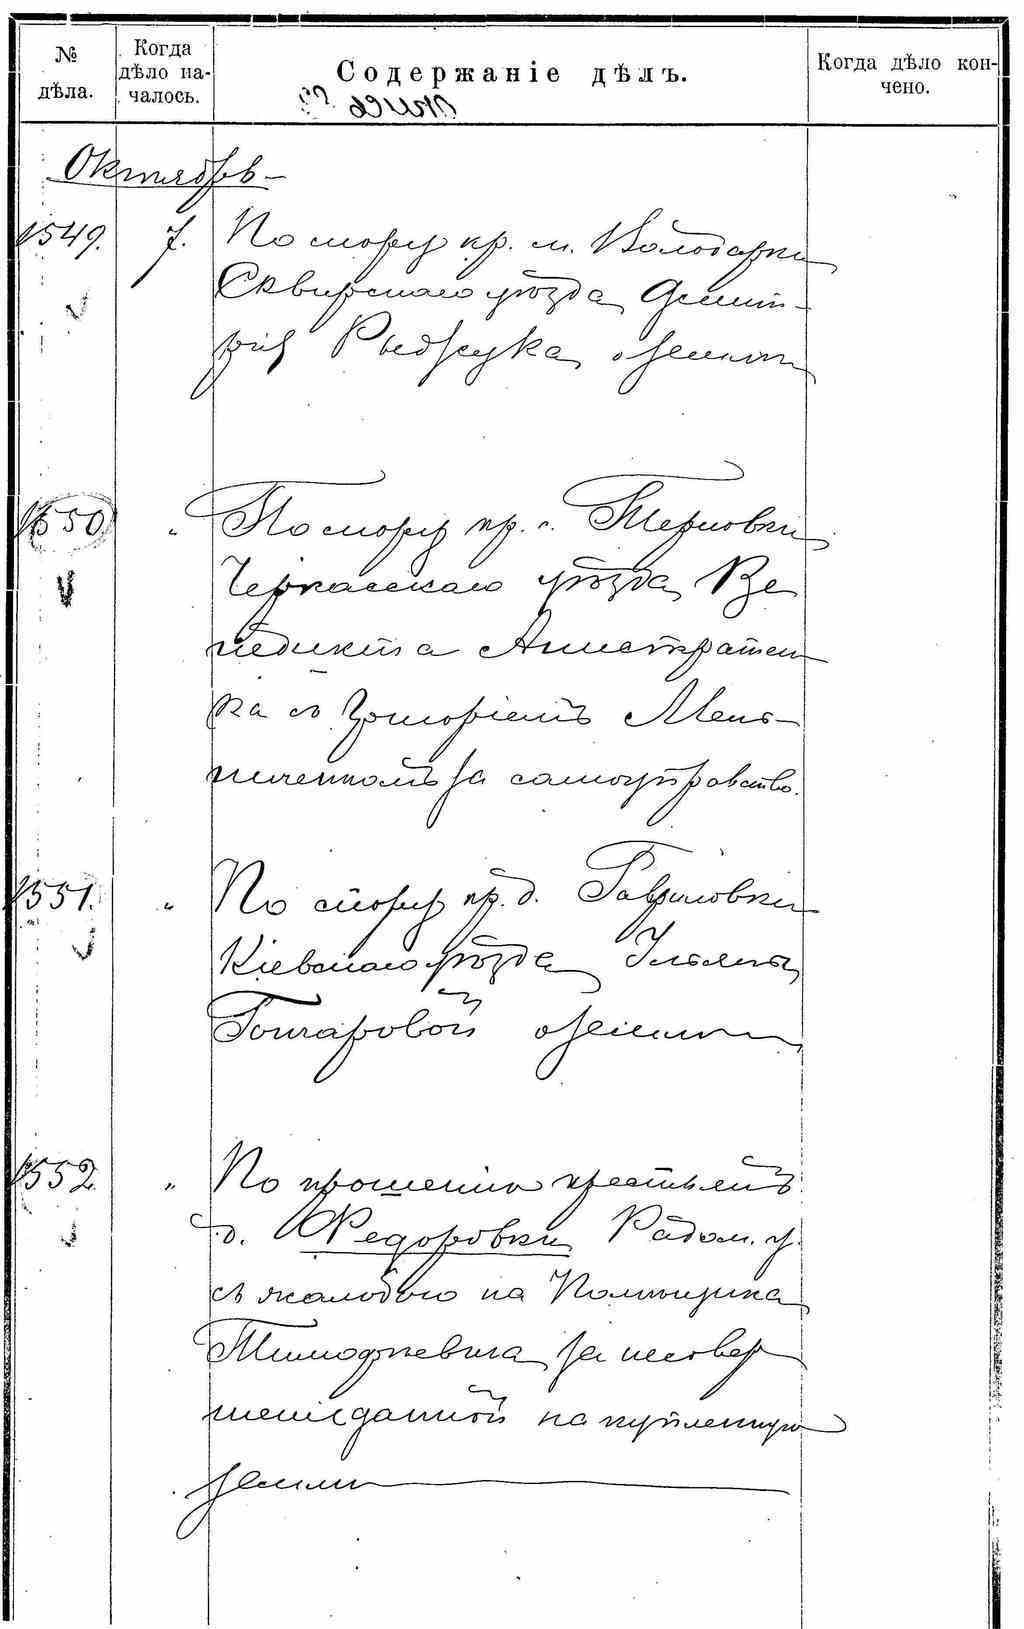 № дѣла.
Когда дѣло началось.
Содержаніе дѣлъ.
Когда дѣло кончено.
Октябрь
1549. 7. По спору кр. м. Володарки
Сквирскаго уѣзда Дмит-
рія Рыбчука о землѣ
1550 " По спору кр. с. Терновки
Черкасскаго уѣзда Ве
недикта Анистратен
ка съ Григоріемъ Мель-
ниченкомъ за самоуправство.
1551. " По спору кр. д. Гавриловки
Кіевскаго уѣзда Ульяны
Гончаровой о землѣ
1552. " По прошенію крестьянъ
д. Федоровки Радом. у.
съ жалобою на Помѣщика
Тимофѣевича за несовер
шеніе данной на купленную
землю